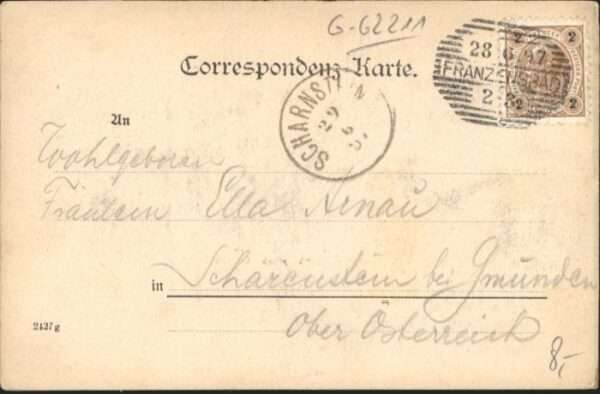 G-62211
Correspondenz-Karte.
28 6 97
FRANZENSBAD
2 3
2 2
2 2
SCHARNSTEIN
29 6
An
Wohlgeboren
Fräulein Ella Arnau
in Schärenstein bei Gmunden
Ober Österreich
2437 g
8,-